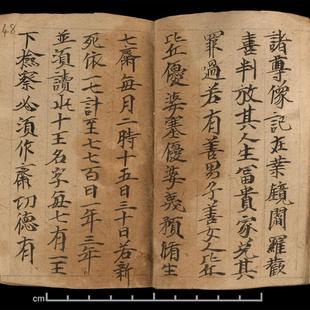 諸尊像記在業鏡閻羅歡
喜判放其人生富貴家免其
罪過若有善男子善女人比丘
比丘優婆塞優婆夷預脩生
七齋每月二時十五日三十日若新
死依一七計至七七百日一年三年
並須請此十王名字每七有一王
下撿察必須作齋功德有
48
cm